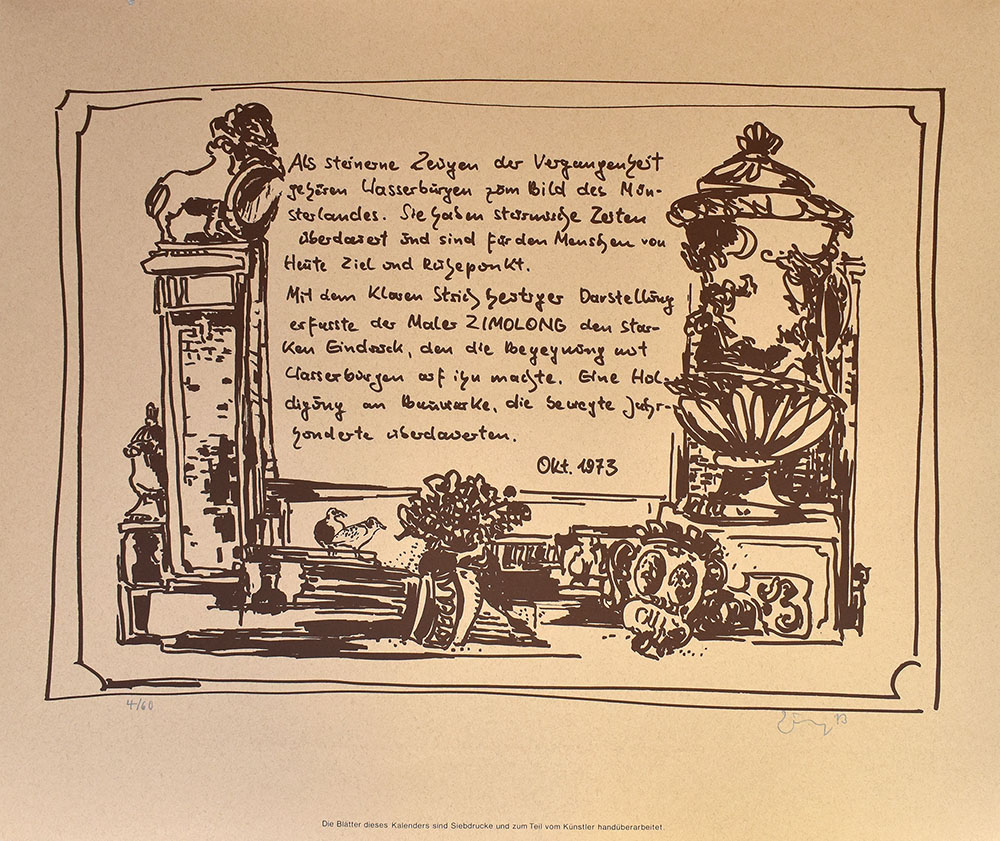 Als steinerne Zeugen der Vergangenheit
gehören Wasserburgen zum Bild des Mün-
sterlandes. Sie haben stürmische Zeiten
überdauert und sind für den Menschen von
Heute Ziel und Ruhepunkt.
Mit dem Klaren Strich heutiger Darstellung
erfasste der Maler ZIMOLONG den star-
ken Eindruck, den die Begegnung mit
Wasserburgen auf ihn machte. Eine Hul-
digung an Bauwerke, die bewegte Jahr-
hunderte überdauerten.
Okt. 1973
4/60
73
Die Blätter dieses Kalenders sind Siebdrucke und zum Teil vom Künstler handüberarbeitet.